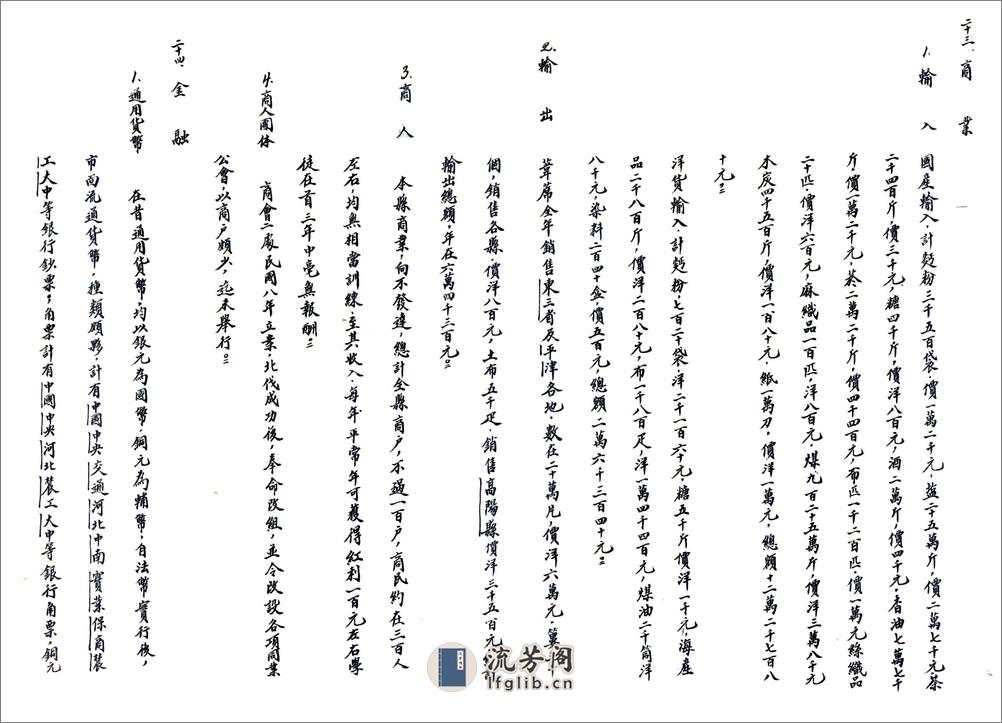 二十三、商業
1. 輸入
國產輸入，計麵粉三千五百袋，價一萬二千元，鹽二十五萬斤，價二萬七千元茶
二千四百斤，價三千元，糖四千斤，價洋八百元，酒二萬斤，價四千元，香油七萬七千
斤，價一萬二千元，菸二萬二千斤，價四千四百元，布匹一千二百匹，價一萬元絲織品
二十匹，價洋六百元，麻織品一百匹，洋八百元，煤九百二十五萬斤，價洋三萬八千元
木炭四千五百斤，價洋一百八十元，紙一萬刀，價洋一萬元總額十二萬二千七百八
十元。
洋貨輸入，計麵粉，七百二十袋，洋二千一百六十元，糖五千斤價洋一千元，海產
品二千八百斤，價洋二百八十元，布一千八百疋，洋一萬四千四百元，煤油二千筒洋
八千元，染料二百四十盒，價五百元，總額二萬六千三百四十元。
2. 輸出
葦蓆全年銷售東三省及平津各地，數在二十萬片，價洋六萬元，簍
個，銷售各縣，價洋八百元，土布五千疋，銷售高陽縣價洋三千五百元
輸出總額，年在六萬四千三百元。
3. 商人
本縣商業，向不發達，總計全縣商户，不過一百户，商民約在三百人
左右，均無相當訓練，至其收入，每年平常年可獲得紅利一百元左右學
徒在首三年中毫無報酬。
4. 商人團体
商會二處民國八年立案，北伐成功後，奉命改組，並令改設各項同業
公會，以商户頗少，迄未舉行。
二十四、金融
1. 通用貨幣
在昔通用貨幣，均以銀元為國幣，銅元為輔幣，自法幣實行後，
市面流通貨幣，種類頗夥，計有中國中央交通河北中南實業保商農
工大中等銀行鈔票，角票計有中國中央河北農工大中等銀行角票，銅元
流芳阁
lfglib.cn